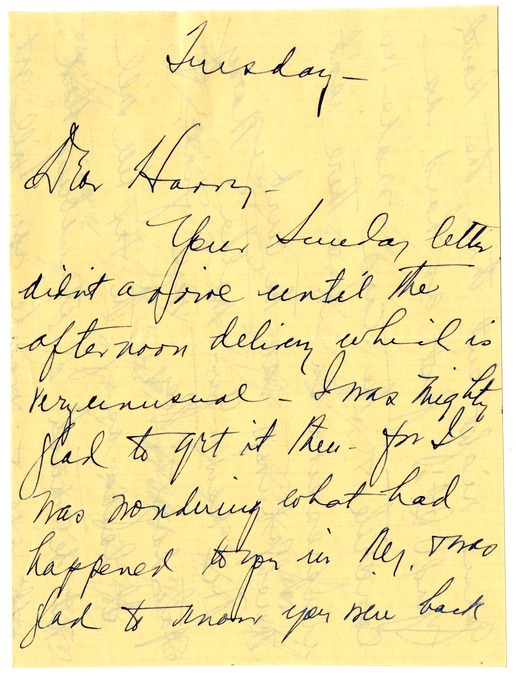 Tuesday -
Dear Harry -
Your Sunday letter
didn't arrive until the
afternoon delivery which is
very unusual - I was mighty
glad to get it then - for I
was wondering what had
happened to you in Ky. I was
glad to know you were back